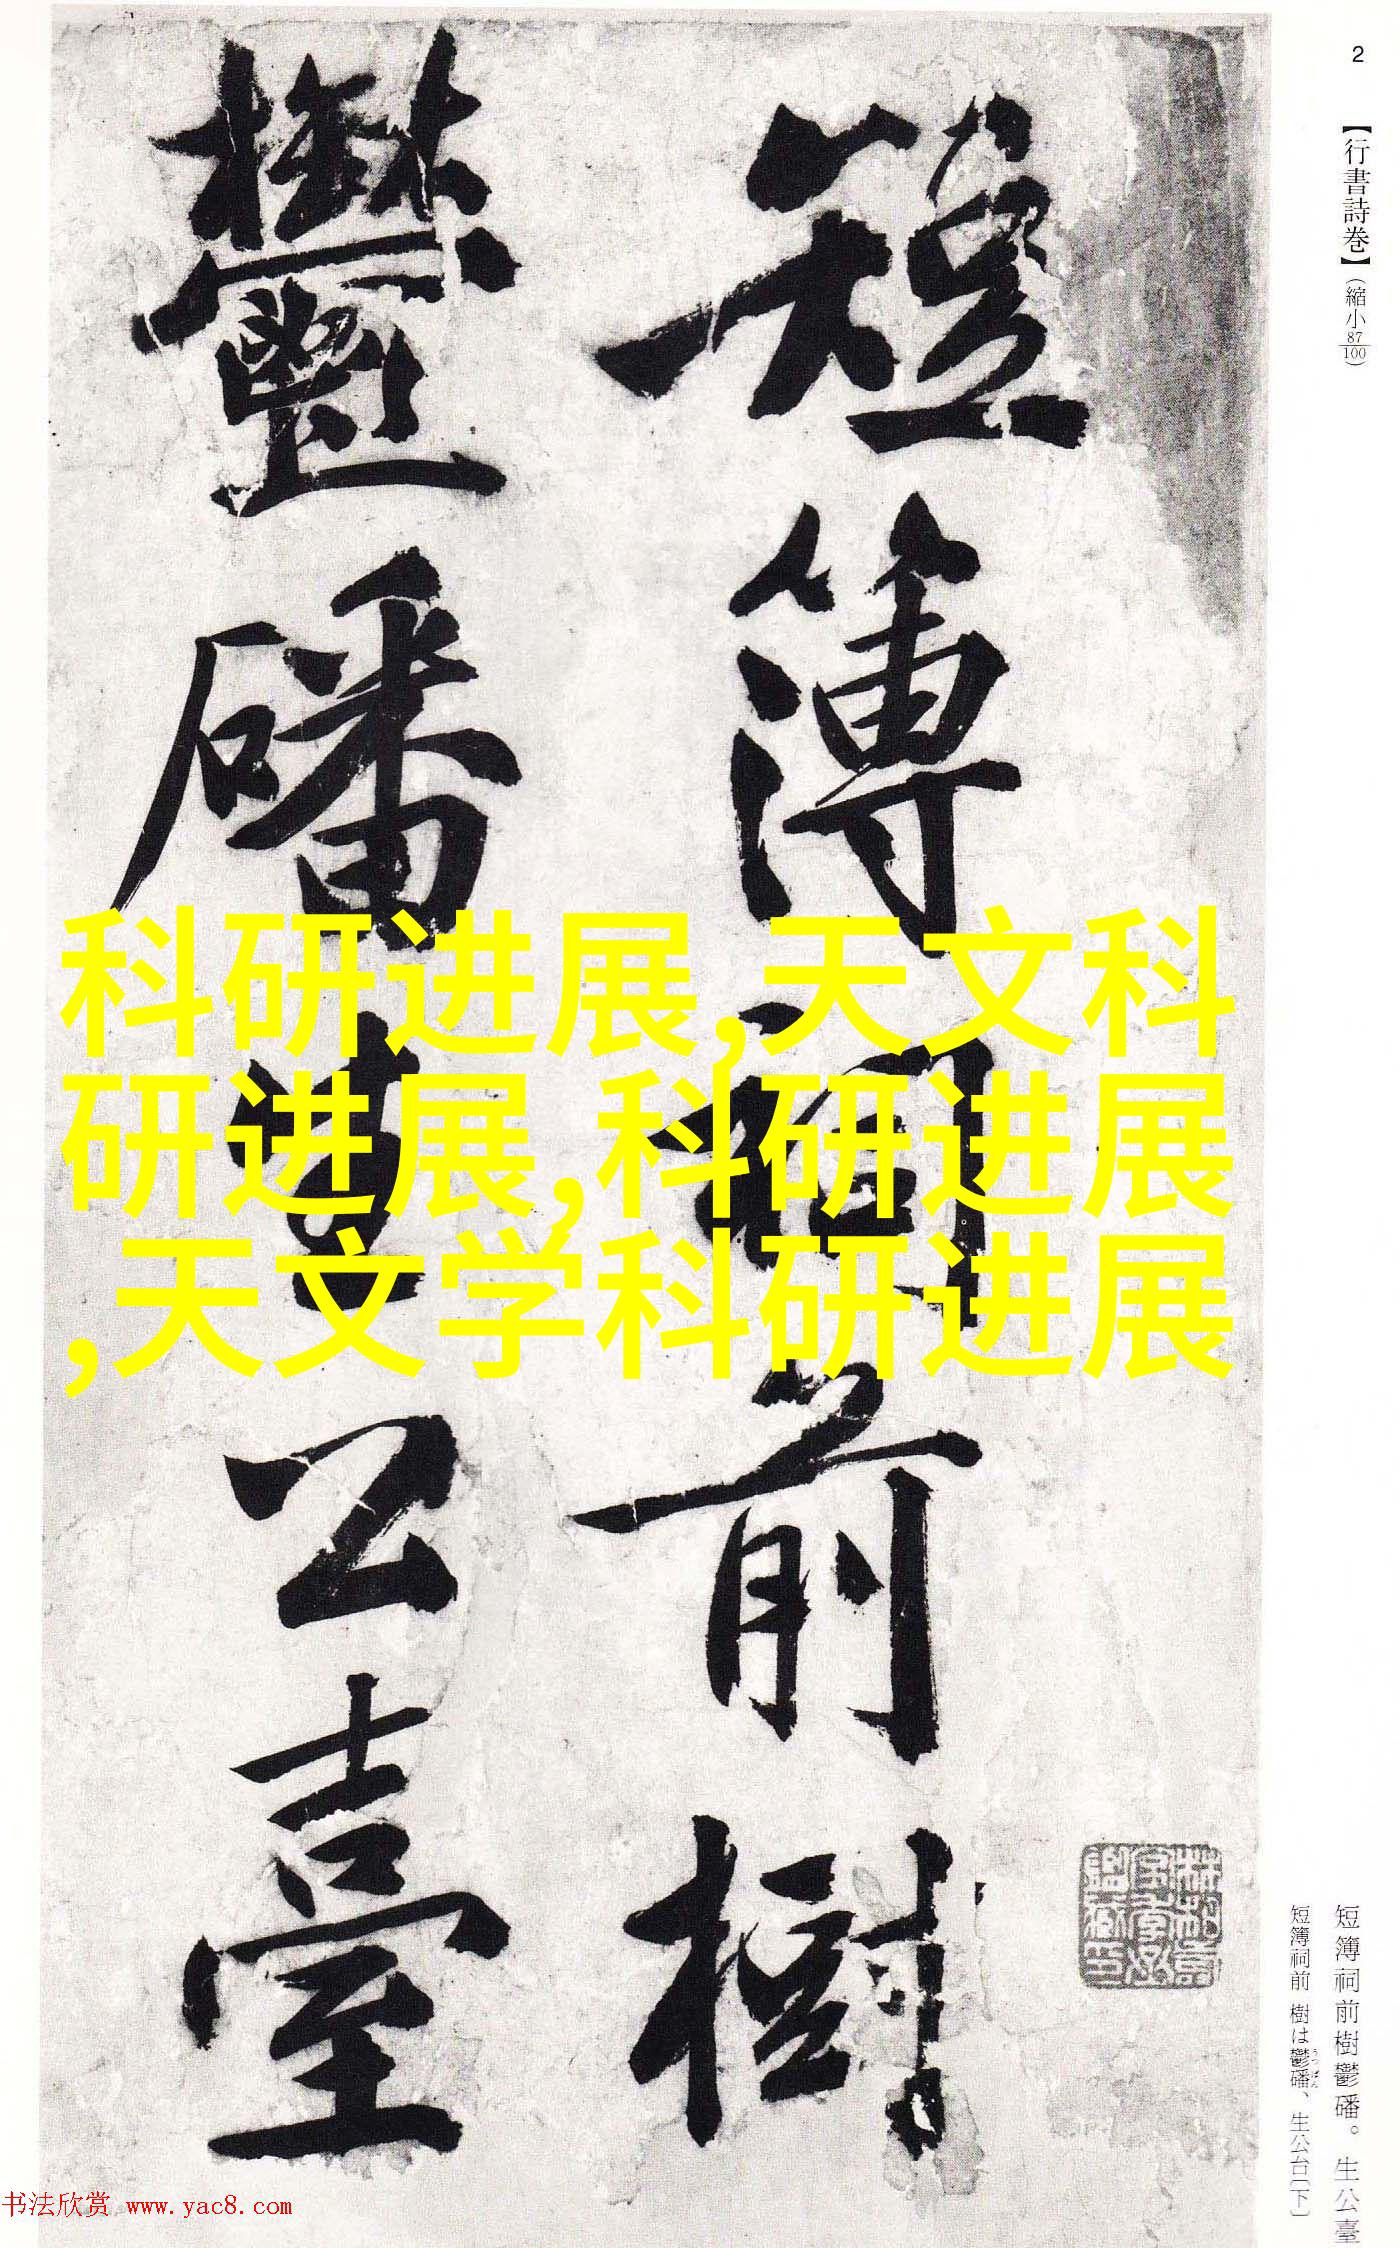 2
【行書詩巻】（縮小87/100）
短簿祠前樹
鬱磻生公臺
科研进展,天文科
研进展,科研进展
,天文学科研进展
短簿祠前樹鬱磻。生公臺
短簿祠前 樹は鬱磻、生公台〔下〕
うっぱん
书法欣赏 www.yac8.com